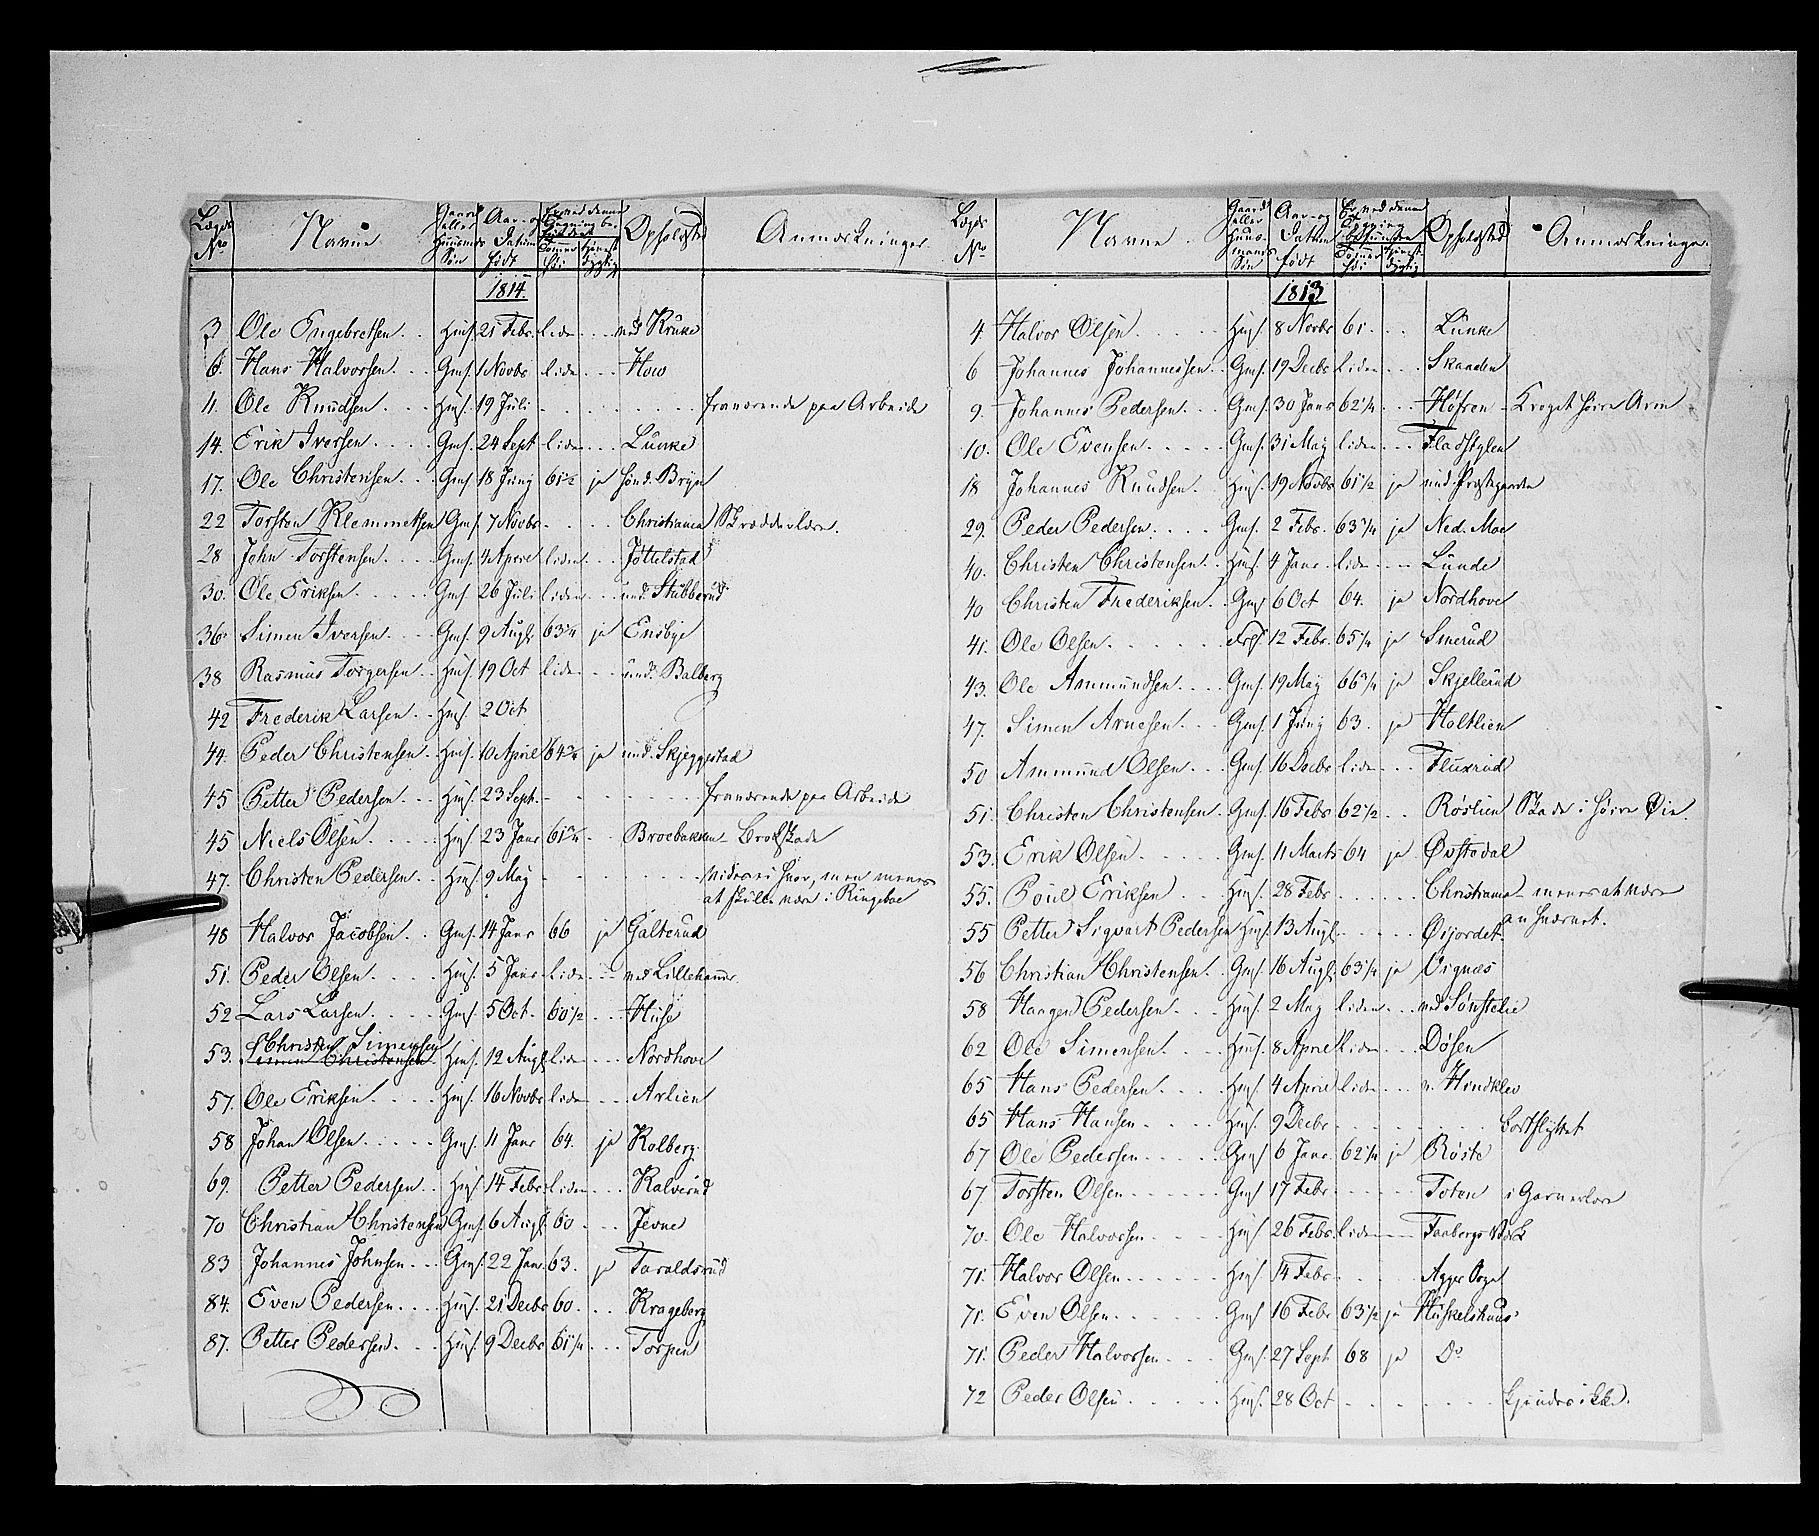 Lægds No Navne Gaard eller Huusmands Søn Aar- og Datum født Opholdsted Anmærkninger
1814.
3 Ole Engebretsen Hmf. 21 Febr liden und Kruke
6. Hans Halvorsen Gmf. 1 Novbr liden How
11. Ole Knudsen Hmf. 19 Juli fraværende paa Arbeide
14. Erik Iversen Gmf. 24 Sept liden Lunke
17. Ole Christensen Gmf 18 Juny 61½ ja sønd. Bryn
22 Torsten Klemmetsen Gmf. 7 Novbr Christiania Skrædderlære.
28 John Torstensen Gmf. 4 April liden Jøttelstad
30. Ole Eriksen Gmf. 26 Juli liden und. Stubberud
36. Simen Iversen Gmf. 9 Augs. 63¼ ja Ensbye
38 Rasmus Torgersen Hmf. 19 Oct liden und. Balberg
42 Frederik Larsen Hmf 2 Oct
44. Peder Christensen Hmf. 10 April 64¾ ja und. Skjeggestad
45 Petter Pedersen Hmf. 23 Sept. fraværende paa Arbeide
45 Niels Olsen Hmf. 23 Janr 61¾ Broebakken Brokskade
47. Christen Pedersen Hmf. 9 May vides ei hvor, men menes
at skulle være i Ringeboe
48 Halvor Jacobsen Gmf. 14 Janr 66 ja Galterud
51. Peder Olsen Hmf. 5 Janr liden ved Lillehamr.
52 Lars Larsen Gmf. 5 Oct. 60½ Huse
Christen Simensen
53. Simen Christensen Hmf. 12 Augs. liden Nordhove
57. Ole Eriksen Hmf. 16 Novbr liden Arlien
58 Johan Olsen Gmf. 11 Janr 64. ja Kolberg.
69. Petter Pedersen Hmf. 14 Febr liden Kalverud
70 Christian Christensen Gmf. 6 Augs. 60 Jevne
83 Johannes Johnsen Gmf. 22 Janr. 63. ja Taraldsrud
84. Even Pedersen Hmf. 21 Decbr 60. Krageberg
87. Petter Pedersen Hmf. 9 Decbr 61¼ Torgen
Lægds No Navne Gaard eller Huusmands Søn Aar og Datum født Opholdsted Anmærkninger.
1813
4. Halvor Olsen Hmf. 8 Novbr 61 Lunke
6 Johannes Johannessen Gmf. 19 Decbr liden Skaaden
9. Johannes Pedersen Gmf. 30 Janr 62¼ Høfren Kroget høire Arm
10. Ole Evensen Gmf. 31 May liden Fladstylen
18 Johannes Knudsen Hmf. 19 Novbr 61½ ja und. Præstegaarden
29. Peder Pedersen Gmf. 2 Febr. 63¾ ja Ned. Moe
40. Christen Christensen Hmf. 4 Janr liden Lunde
40 Christen Frederiksen Gmf 6 Oct 64. ja Nordhove
41. Ole Olsen 12 Febr. 65¼ ja Smerud
43. Ole Ammundsen Gmf. 19 May 66¾ ja Skjellerud
47. Simen Arnesen Gmf. 1 Juny 63. ja Holtlien
50 Ammund Olsen Gmf. 16 Decbr liden Fluxrud
51. Christen Christensen Gmf. 16 Febr 62½ Røslien Skade i høire Øie.
53. Erik Olsen Gmf. 11 Marts 64 ja Øvstedal
55. Poul Eriksen Hmf. 28 Febr Christiania menes at være
an hvervet.
55 Petter Sigvart Pedersen Hmf. 13 Augs. Øijordet
56 Christian Christensen Gmf. 16 Augs. 63¼ ja Vignæs
58 Haagen Pedersen Hmf. 2 May liden und Sønstelie
62 Ole Simensen Hmf. 8 April liden Døsen
65 Hans Pedersen Hmf. 4 April liden u. Hindklev
65 Hans Hansen Hmf. 9 Decbr bortflyttet
67 Ole Pedersen Gmf 6 Janr. 62¼ ja Røiste
67. Torsten Olsen Gmf 17 Febr Toten i Garverlære
70. Ole Halvorsen Hmf 26 Febr. liden Faabergs Værk
71. Halvor Olsen Hmf 14 Febr Agger Sogn
71. Even Olsen Gmf 16 Febr 63½ ja Huskelshuus
71. Peder Halvorsen Gmf. 27 Sept 68 ja Do
72 Peder Olsen Hmf. 28 Oct kjendes ikke.